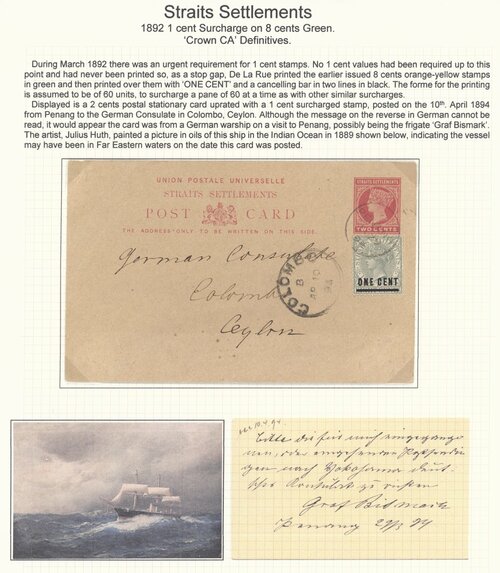 Straits Settlements
1892 1 cent Surcharge on 8 cents Green.
'Crown CA' Definitives.
During March 1892 there was an urgent requirement for 1 cent stamps. No 1 cent values had been required up to this
point and had never been printed so, as a stop gap, De La Rue printed the earlier issued 8 cents orange-yellow stamps
in green and then printed over them with 'ONE CENT' and a cancelling bar in two lines in black. The forme for the printing
is assumed to be of 60 units, to surcharge a pane of 60 at a time as with other similar surcharges.
Displayed is a 2 cents postal stationary card uprated with a 1 cent surcharged stamp, posted on the 10th. April 1894
from Penang to the German Consulate in Colombo, Ceylon. Although the message on the reverse in German cannot be
read, it would appear the card was from a German warship on a visit to Penang, possibly being the frigate 'Graf Bismark'.
The artist, Julius Huth, painted a picture in oils of this ship in the Indian Ocean in 1889 shown below, indicating the vessel
may have been in Far Eastern waters on the date this card was posted.
UNION POSTALE UNIVERSELLE
STRAITS SETTLEMENTS
POST CARD
THE ADDRESS ONLY TO BE WRITTEN ON THIS SIDE.
TWO CENTS
ONE CENT
German Consulate
Colombo
Ceylon
COLOMBO
B
AP 10
94
Bitte die für mich eingegange
nen, oder eingehenden
gen nach Yokohama deut
sches Konsulat zu
Graf Bismark
Penang 29/3 94